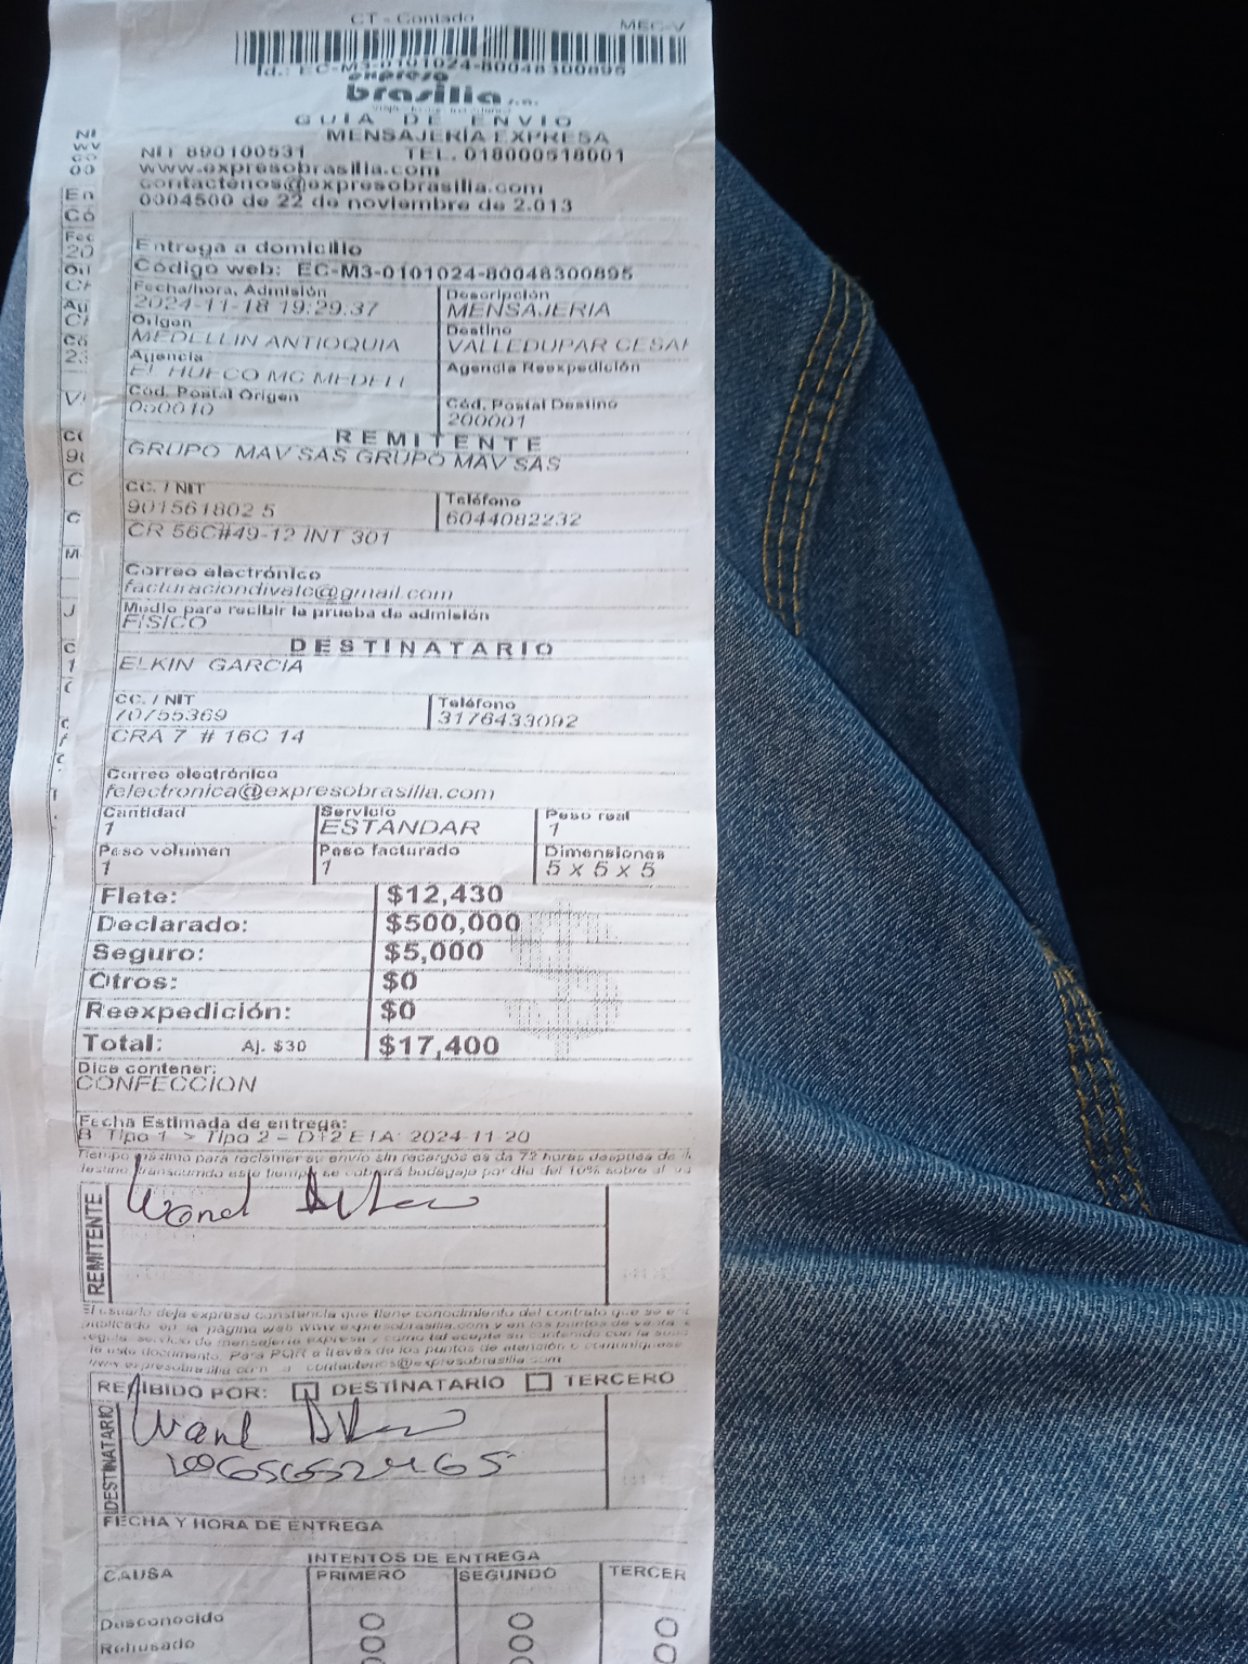 CT - Contado MEC-V
Id.: EC-M3-0101024-80048300895
expreso
brasilia s.a.
GUIA DE ENVIO
MENSAJERÍA EXPRESA
NIT 890100531 TEL. 018000518001
www.expresobrasilia.com
contactenos@expresobrasilia.com
0004500 de 22 de noviembre de 2.013
Entrega a domicilio
Código web: EC-M3-0101024-80048300895
Fecha/hora, Admisión Descripción
2024-11-18 19:29.37 MENSAJERIA
Origen Destino
MEDELLIN ANTIOQUIA VALLEDUPAR CESAR
Agencia Agencia Reexpedición
EL HUECO MC MEDELL
Cód. Postal Origen Cód. Postal Destino
050010 200001
REMITENTE
GRUPO MAV SAS GRUPO MAV SAS
CC. / NIT Teléfono
901561802 5 6044082232
CR 56C#49-12 INT 301
Correo electrónico
facturaciondivatc@gmail.com
Medio para recibir la prueba de admisión
FISICO
DESTINATARIO
ELKIN GARCIA
CC. / NIT Teléfono
70755369 3176433092
CRA 7 # 16C 14
Correo electrónico
felectronica@expresobrasilia.com
Cantidad Servicio Peso real
1 ESTANDAR 1
Peso volumen Peso facturado Dimensiones
1 1 5 x 5 x 5
Flete: $12,430
Declarado: $500,000
Seguro: $5,000
Otros: $0
Reexpedición: $0
Total: Aj. $30 $17,400
Dice contener:
CONFECCION
Fecha Estimada de entrega:
B Tipo 1 > Tipo 2 - D+2 ETA: 2024-11-20
Tiempo máximo para reclamar su envío sin recargos es da 72 horas después de
destino transcurrido este tiempo se cobrará bodegaje por día del 10% sobre el
REMITENTE
El usuario deja expresa constancia que tiene conocimiento del contrato que se
publicado en la página web www.expresobrasilia.com y en los puntos de venta
regula servicio de mensajería expresa y como tal acepta su contenido con la
de este documento. Para PQR a través de los puntos de atención o comuníquese
www.expresobrasilia.com contactenos@expresobrasilia.com
RECIBIDO POR: DESTINATARIO TERCERO
DESTINATARIO
FECHA Y HORA DE ENTREGA
INTENTOS DE ENTREGA
CAUSA PRIMERO SEGUNDO TERCER
Desconocido
Rehusado